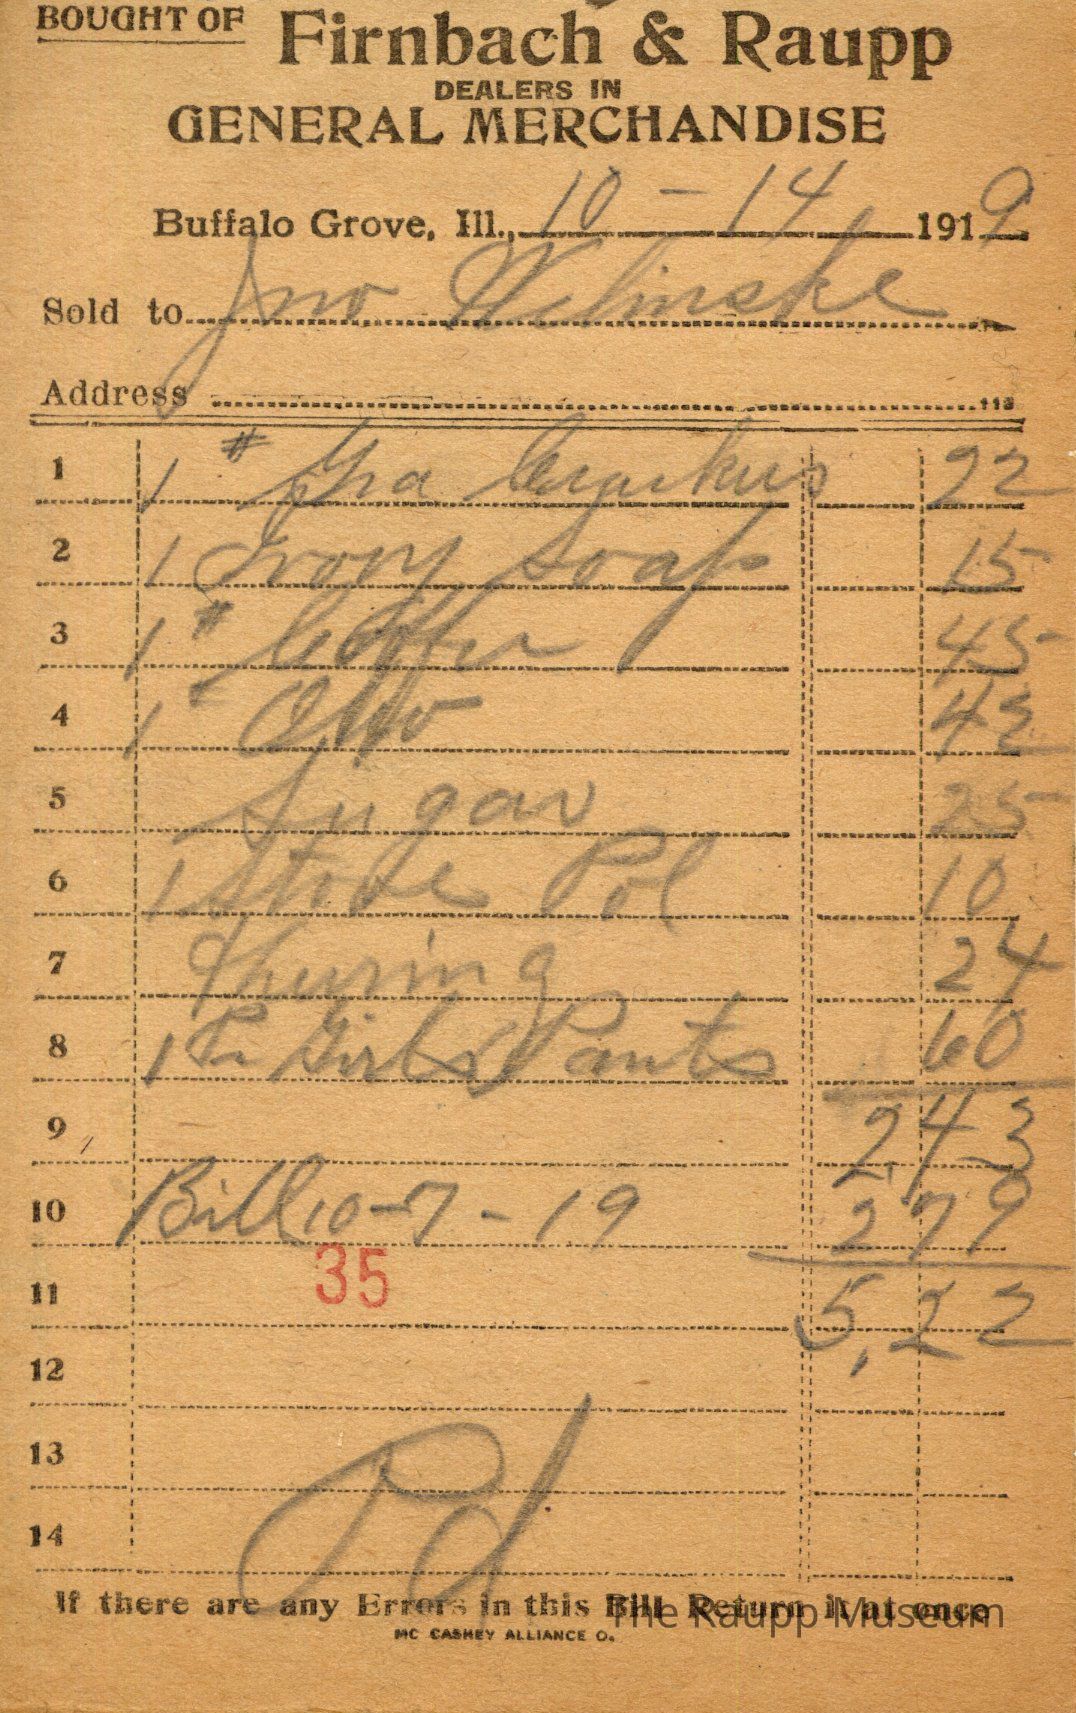 BOUGHT OF Firnbach & Raupp
DEALERS IN
GENERAL MERCHANDISE
Buffalo Grove, Ill., 10 - 14 1919
Sold to Jno Wilinske
Address
1 1 # Gra Crackers 22
2 1 Ivory Soap 15
3 1 # Coffee 45
4 1 # 42
5 Sugar 25
6 1 Stove Pol 10
7 24
8 1 Pr Girls Pants 60
9 2,43
10 Bill 10-7-19 2 79
35
11 5,22
12
13
14
Pd
If there are any Errors in this Bill Return it at once
MC CASKEY ALLIANCE O.
The Raupp Museum